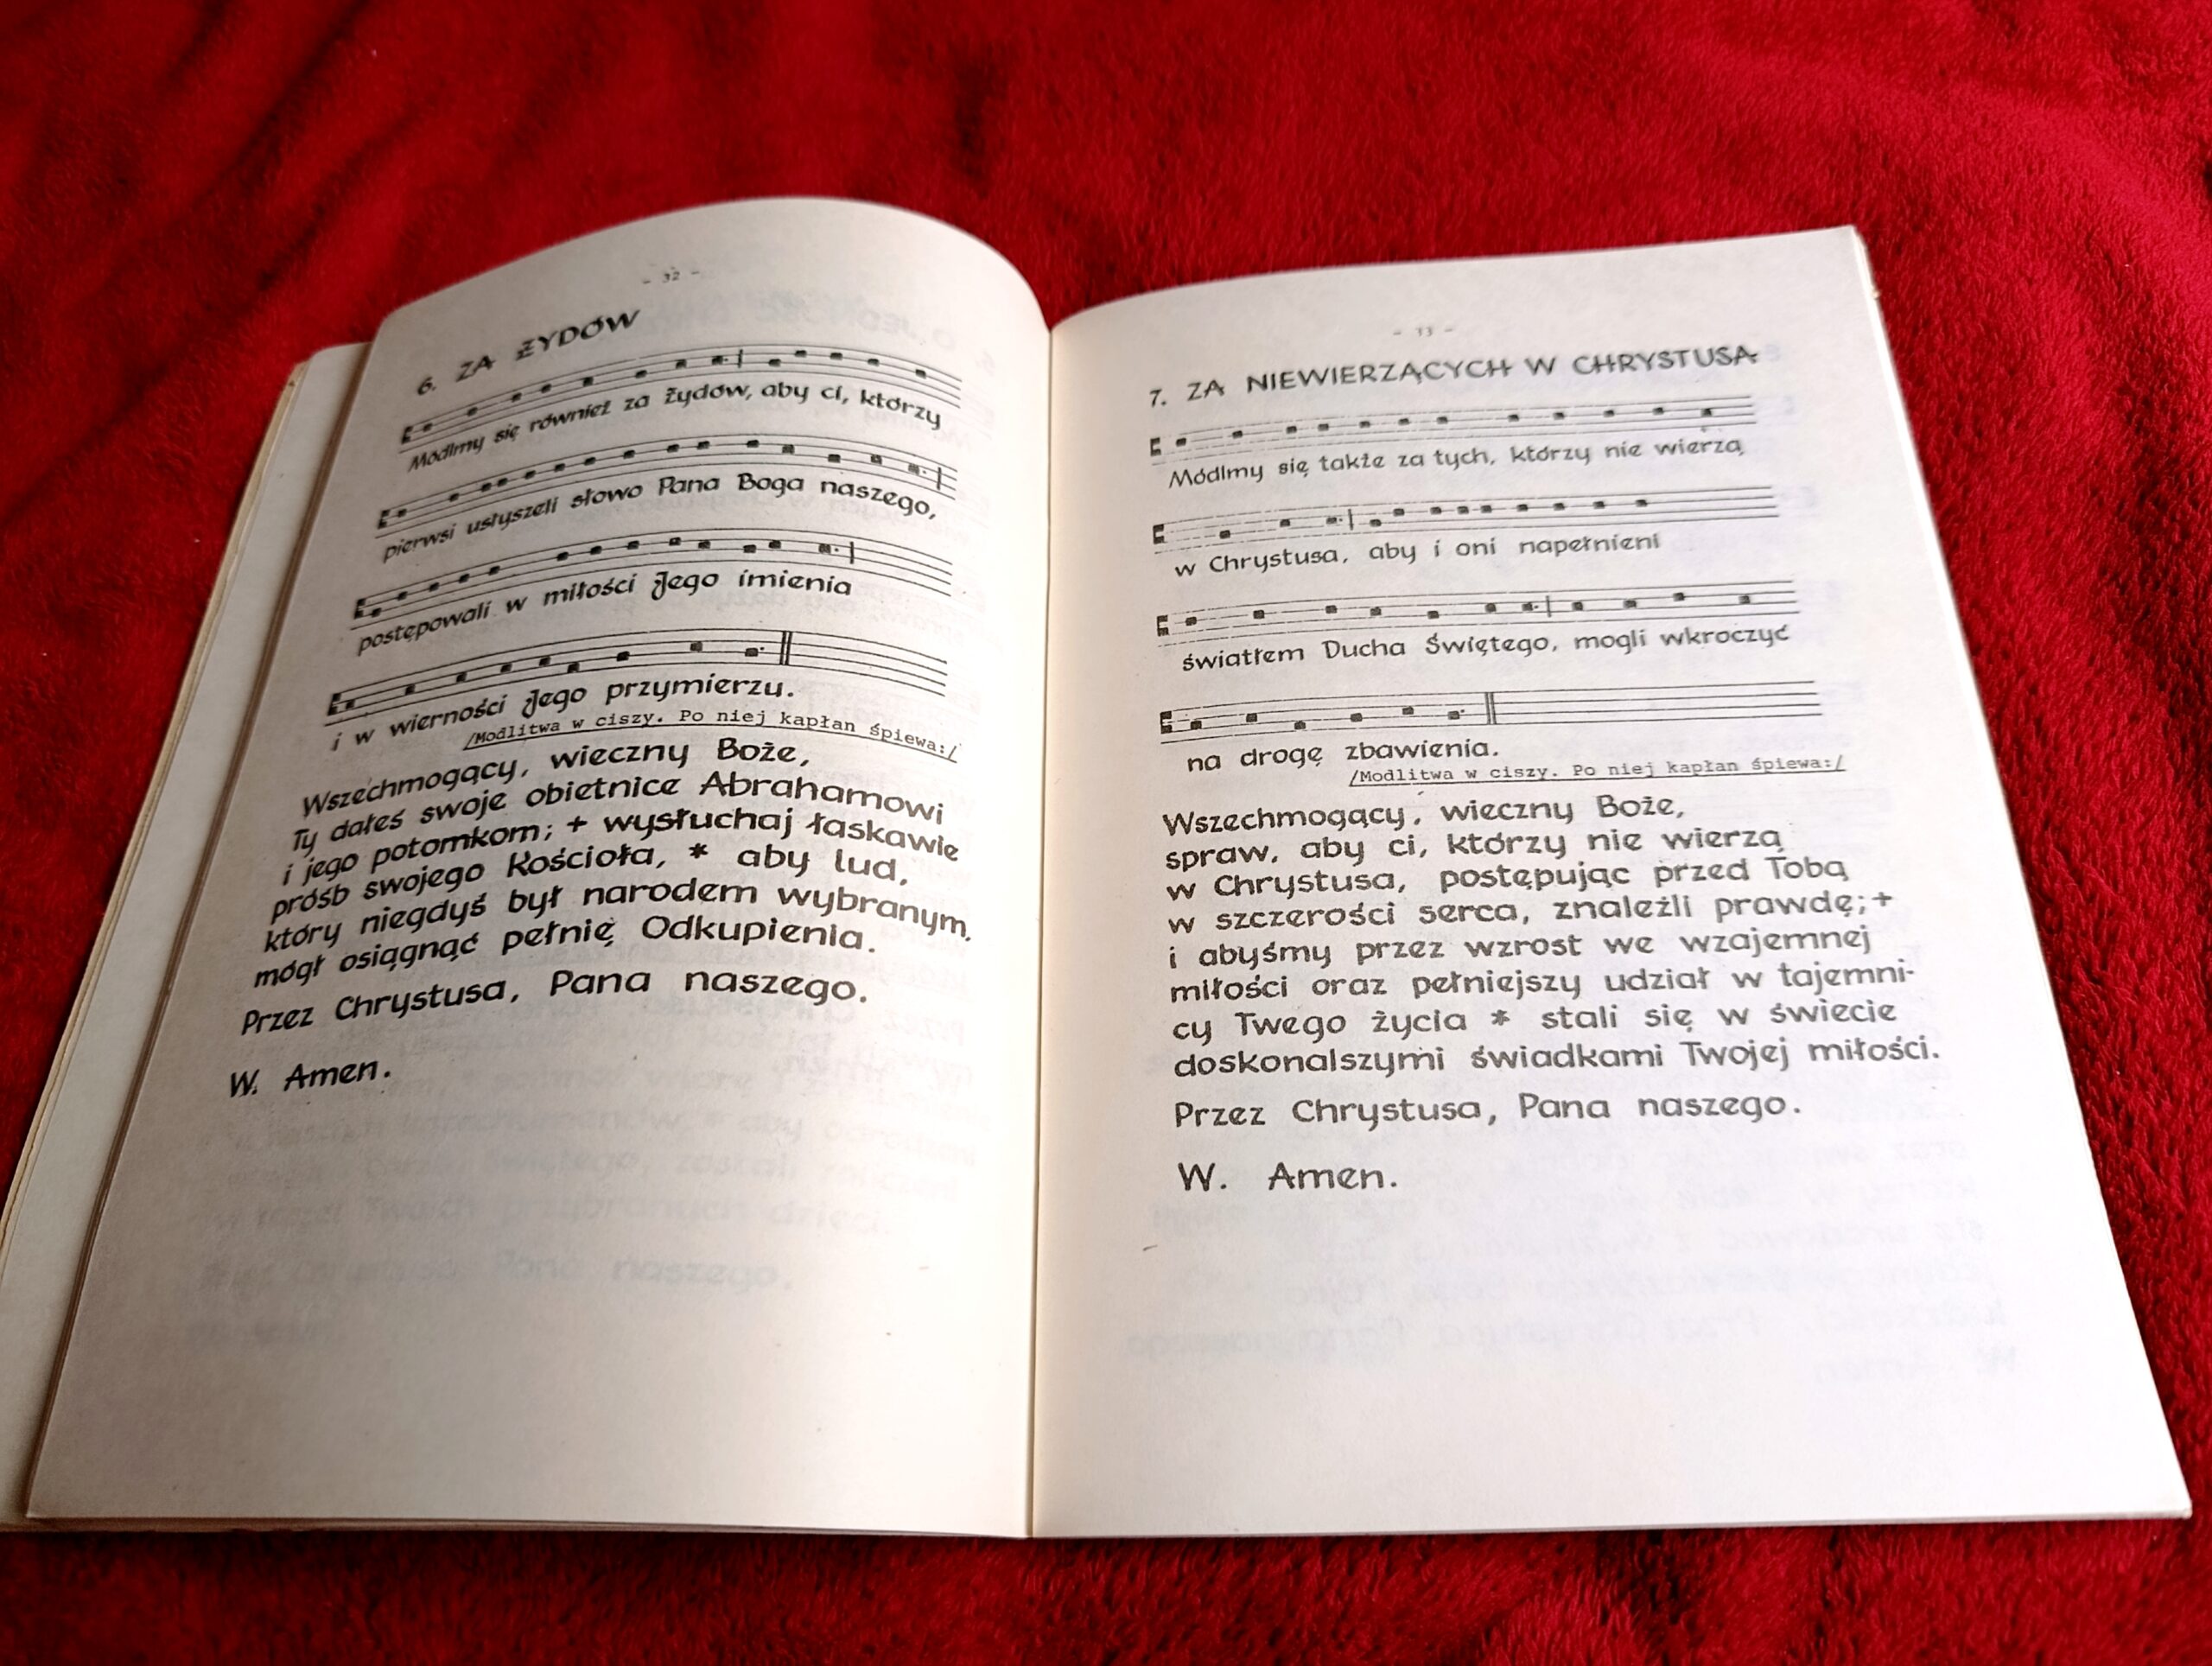 - 32 -
6. ZA ŻYDÓW
Módlmy się również za Żydów, aby ci, którzy
pierwsi usłyszeli słowo Pana Boga naszego,
postępowali w miłości Jego imienia
i w wierności Jego przymierzu.
/Modlitwa w ciszy. Po niej kapłan śpiewa:/
Wszechmogący, wieczny Boże,
Ty dałeś swoje obietnice Abrahamowi
i jego potomkom; + wysłuchaj łaskawie
próśb swojego Kościoła, * aby lud,
który niegdyś był narodem wybranym,
mógł osiągnąć pełnię Odkupienia.
Przez Chrystusa, Pana naszego.
W. Amen.
- 33 -
7. ZA NIEWIERZĄCYCH W CHRYSTUSA
Módlmy się także za tych, którzy nie wierzą
w Chrystusa, aby i oni napełnieni
światłem Ducha Świętego, mogli wkroczyć
na drogę zbawienia.
/Modlitwa w ciszy. Po niej kapłan śpiewa:/
Wszechmogący, wieczny Boże,
spraw, aby ci, którzy nie wierzą
w Chrystusa, postępując przed Tobą
w szczerości serca, znaleźli prawdę; +
i abyśmy przez wzrost we wzajemnej
miłości oraz pełniejszy udział w tajemni-
cy Twego życia * stali się w świecie
doskonalszymi świadkami Twojej miłości.
Przez Chrystusa, Pana naszego.
W. Amen.